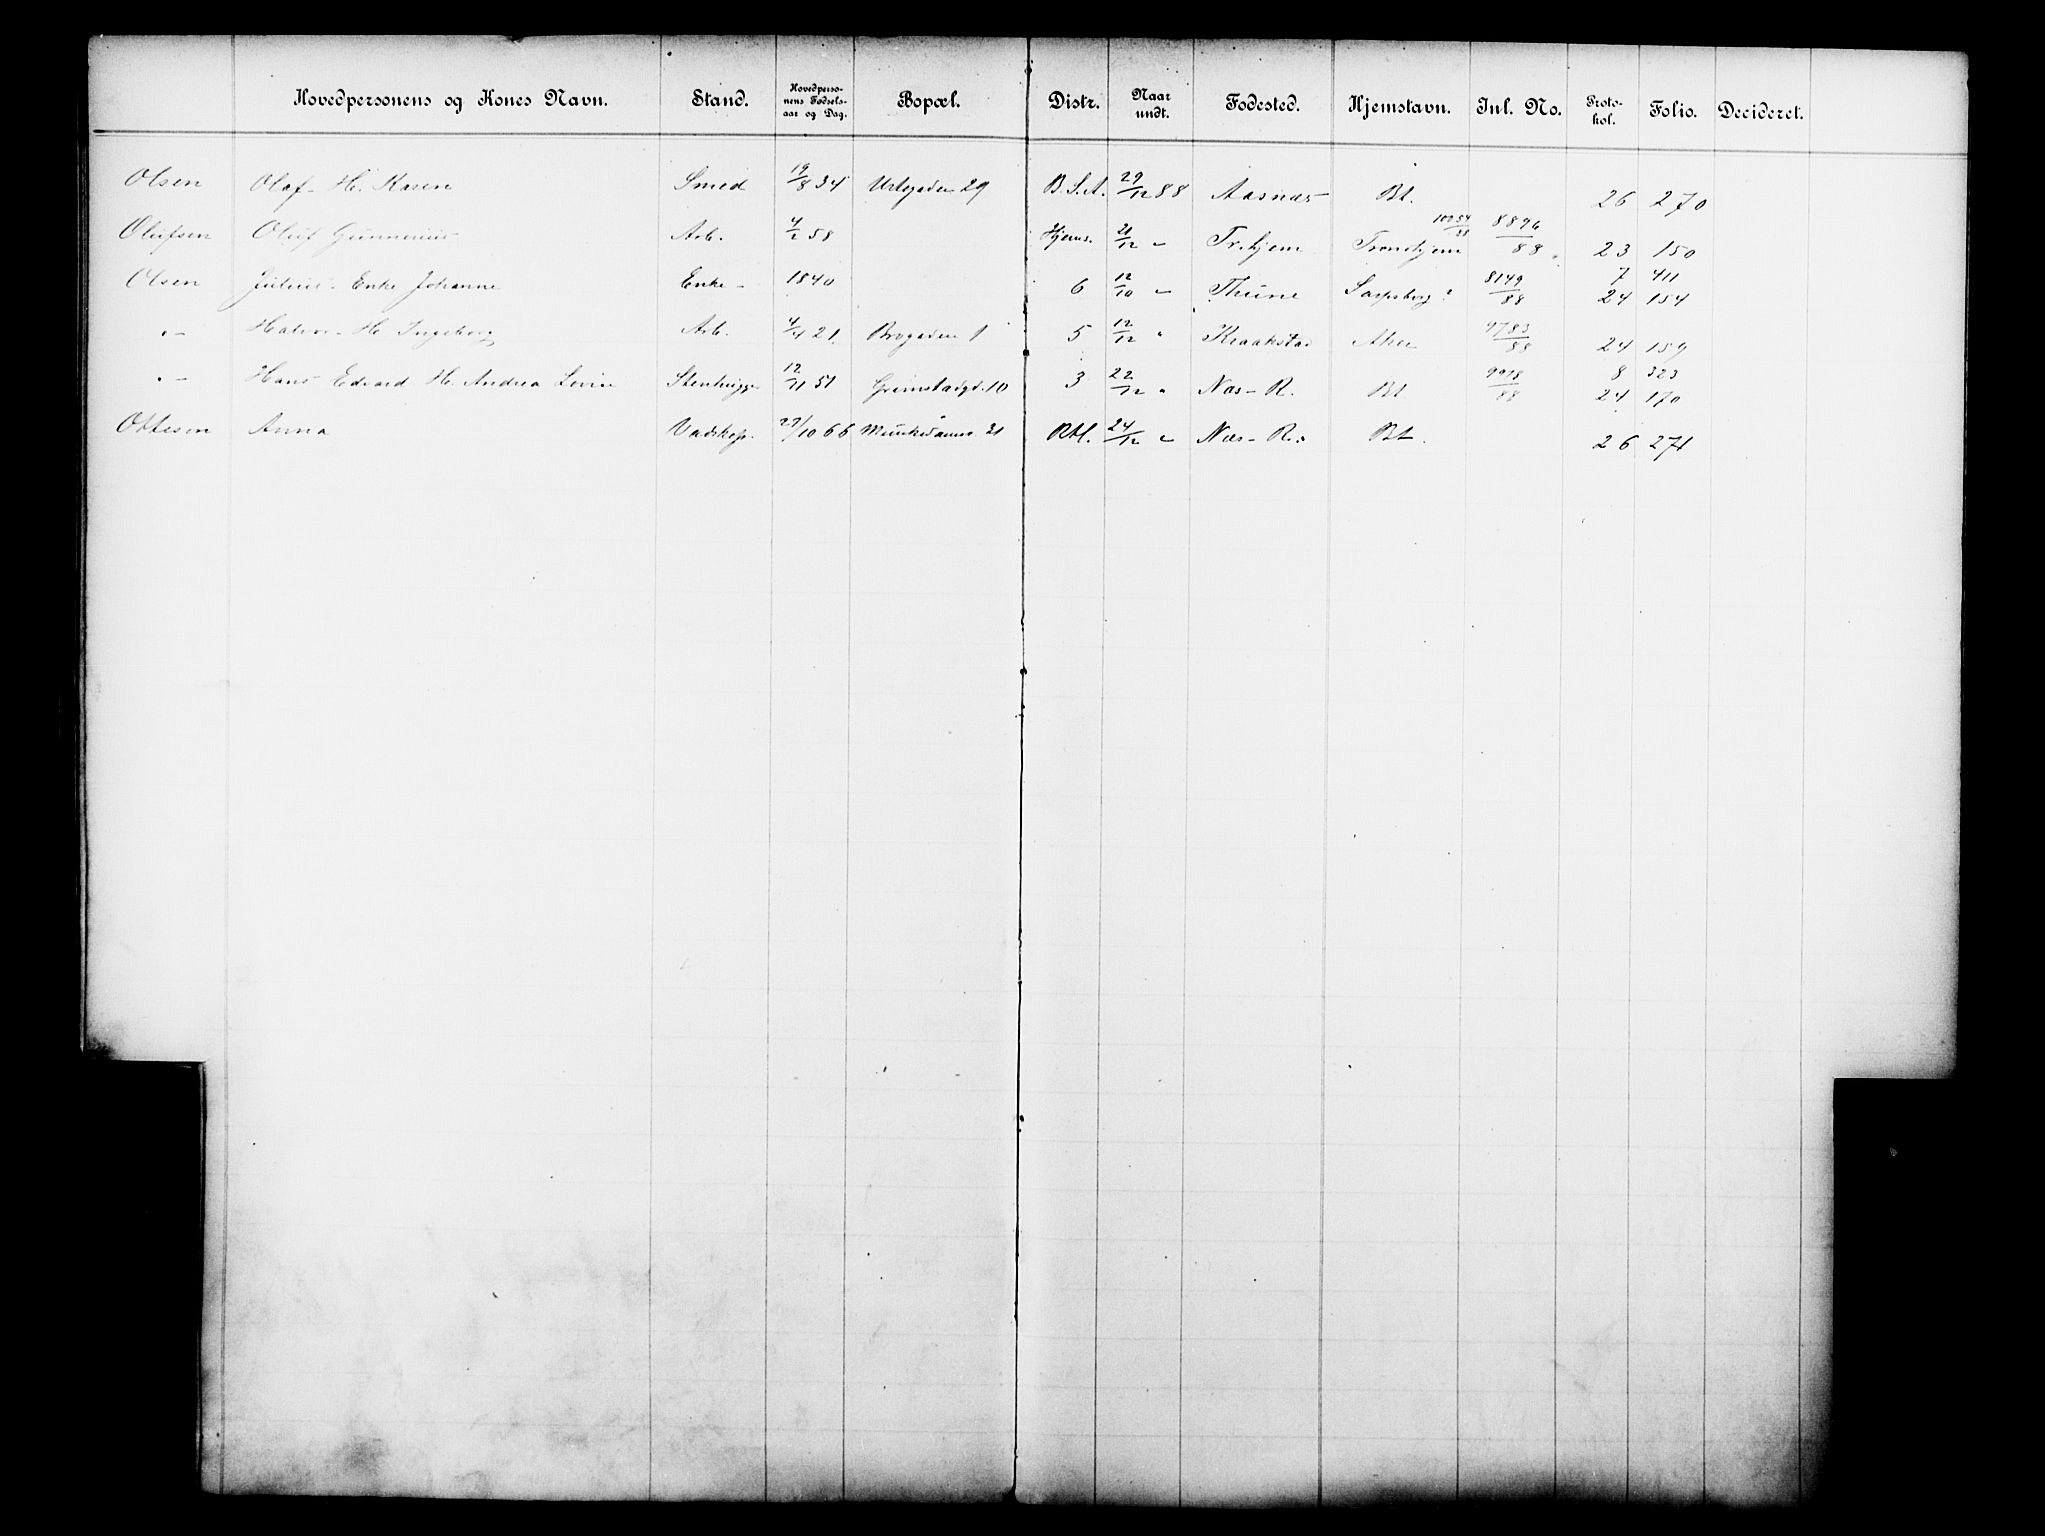 Hovedpersonens og Kones Navn. Stand. Hovedpersonens Fødselsaar og Dag. Bopæl. Distr. Naar undt. Fødested. Hjemstavn. Inl. No. Protokol. Folio. Decideret.
Olsen Olaf - H. Karen Smed 19/8 34 Urtegaden 29 B.S.A. 29/12 88 Aasnæs Bt. 26 270
Olufsen Oluf Gunnerius Arb. 4/2 58 Hjems. 21/12 " Tr.hjem Trondhjem 8896/88 23 150
Olsen Julius - Enke Johanne Enke - 1840 6 12/10 " Thune Sarpsborg? 8149/88 7 411 24 154
" - Halvor - H. Ingeborg Arb. 4/4 21 Brogaden 1 5 12/12 " Kraakstad Aker 9783/88 24 159
" - Hans Edvard H. Andrea Lovise Stenhugger 12/11 51 Grimstadgd. 10 3 22/12 " Næs - R. Bt 9918/88 8 323 24 170
Ottesen Anna Vadskep. 27/10 66 Munkedamsv. 21 Rtl. 24/12 " Næs - R. Bt. 26 271